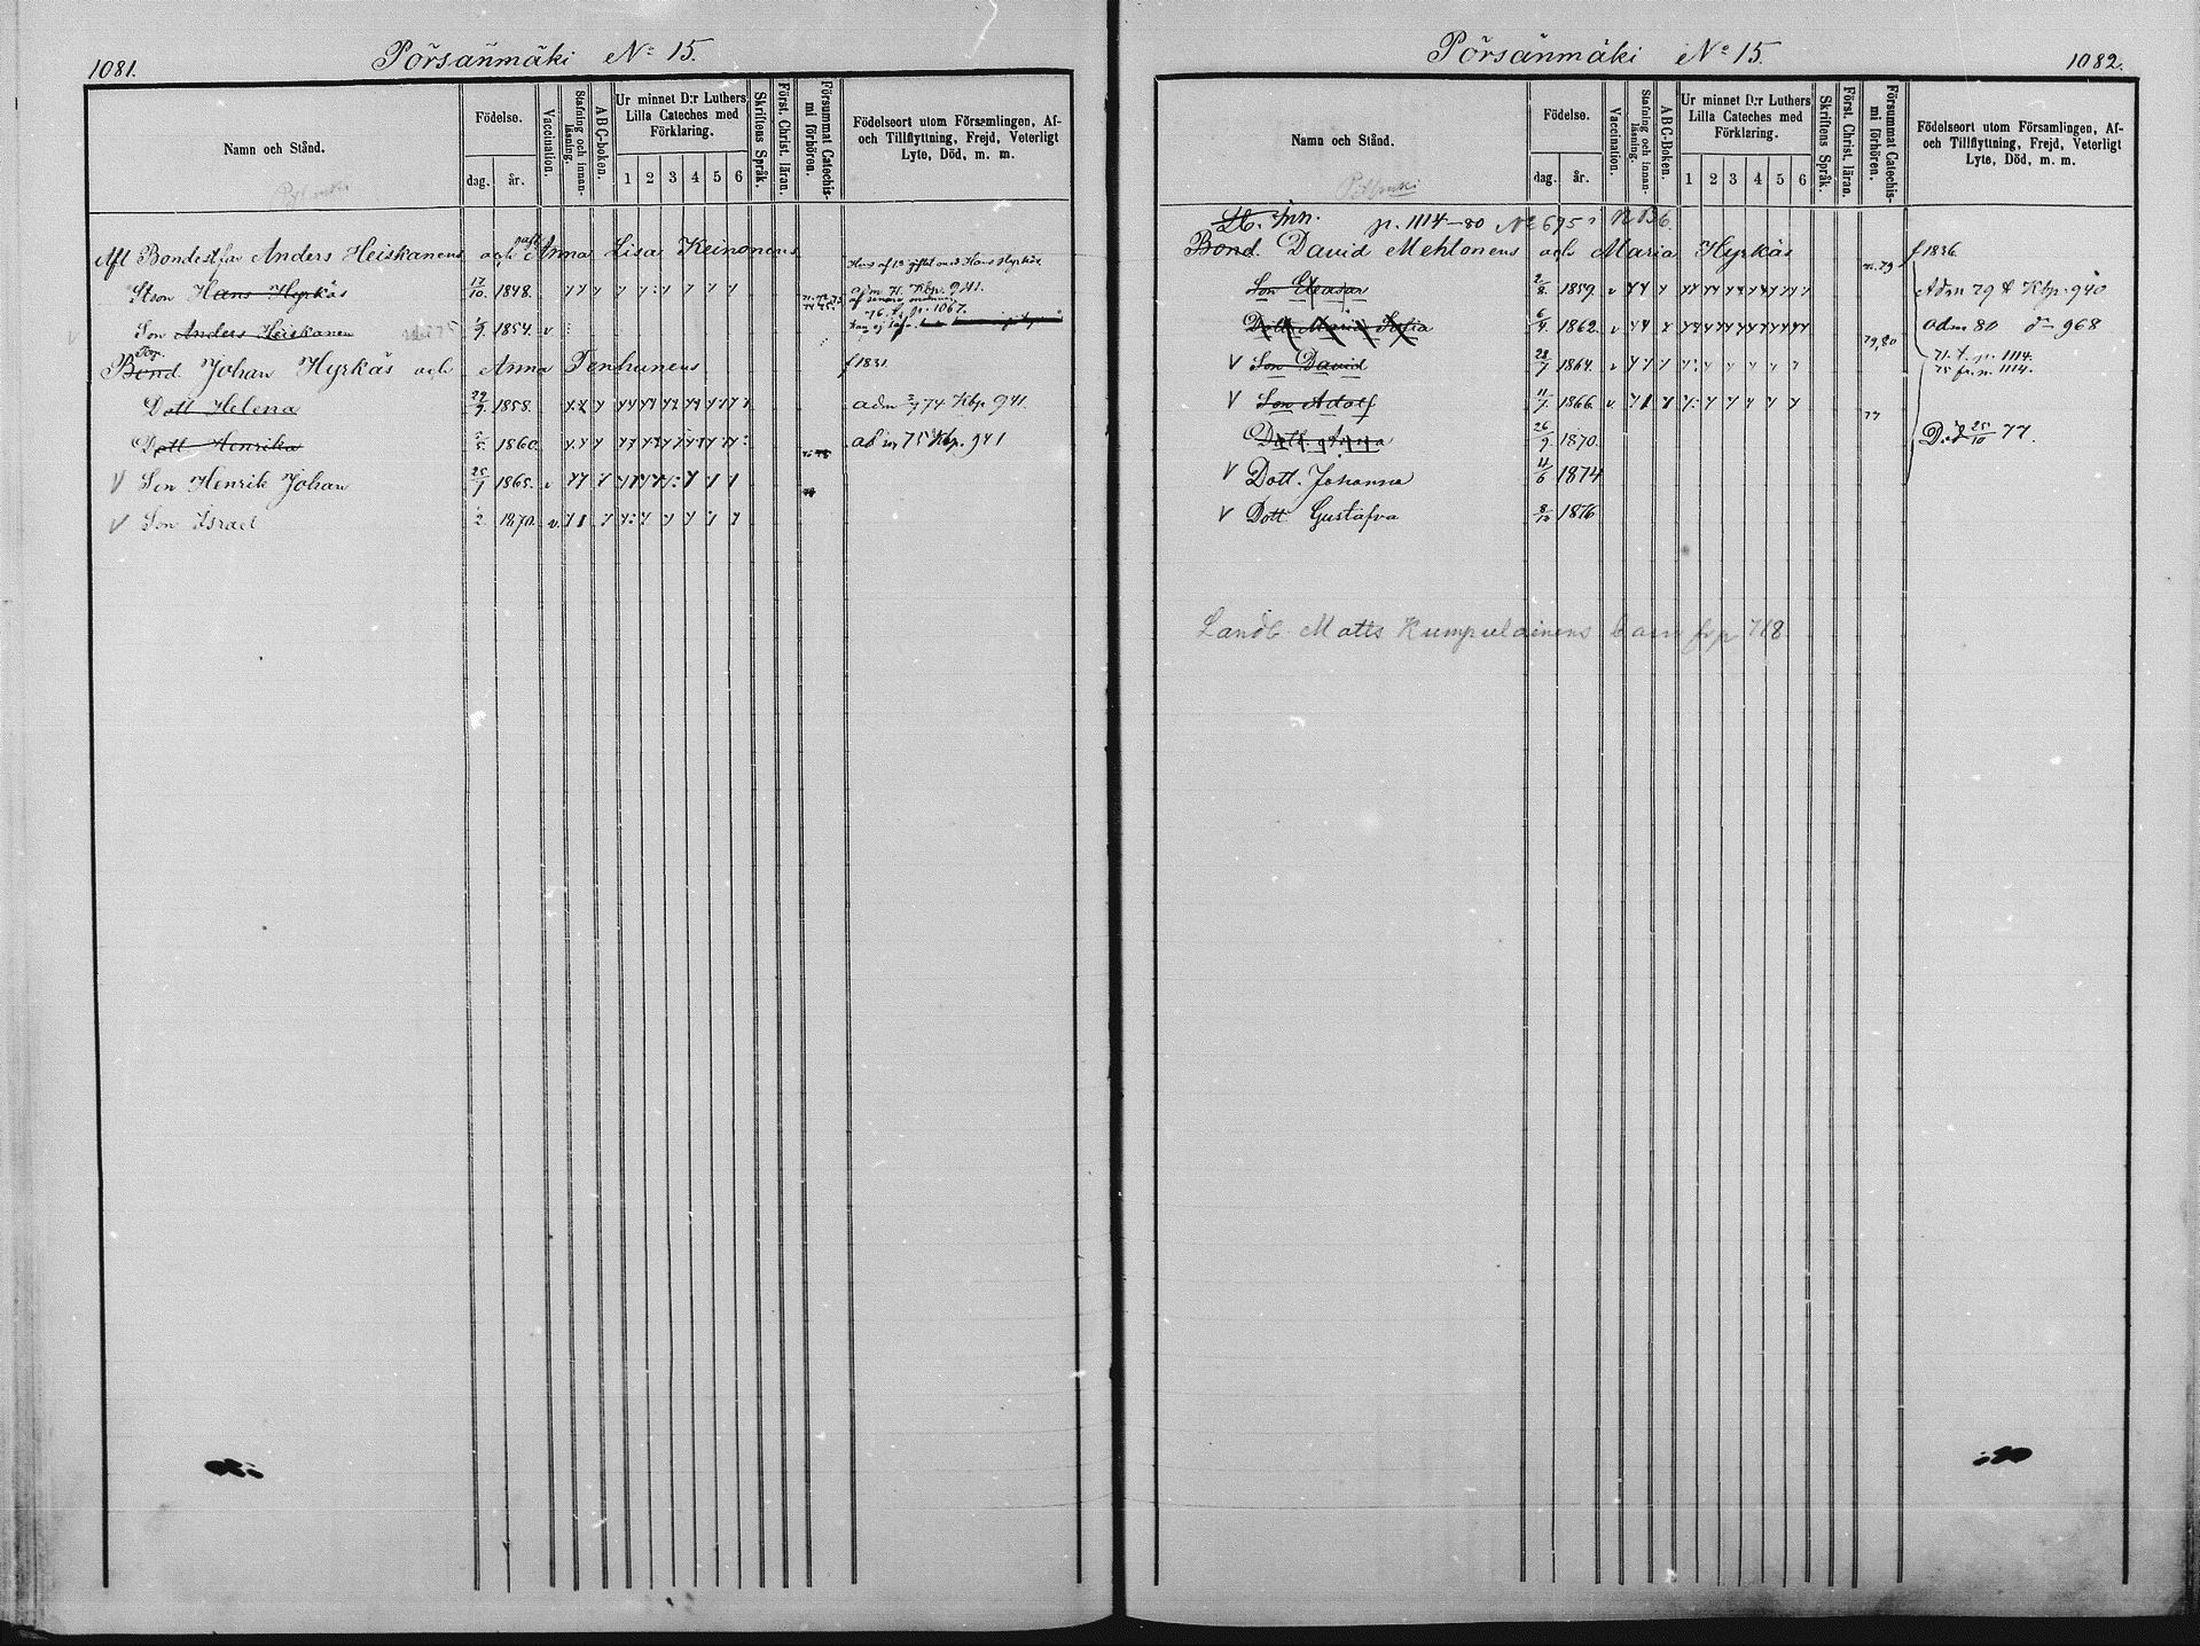 1081.
Pörsänmäki No 15.
Namn och Stånd.
Födelse.
dag. år.
Vaccination.
Stafning och innanläsning.
ABC-boken.
Ur minnet D:r Luthers Lilla Cateches med Förklaring.
1 2 3 4 5 6
Skriftens Språk.
Först. Christ. läran.
Försummat Catechismi förhören.
Födelseort utom Församlingen, Af- och Tillflyttning, Frejd, Veterligt Lyte, Död, m. m.
Afl Bondest far Anders Heiskanens och Anna Lisa Keinonens
Stson Hans Hyrkäs 17/10. 1848. adm 71. Kbp. 941.
76. fr. p. 1067.
Son Anders Heiskanen 1/9. 1854. v
Bond. Johan Hyrkäs och Anna Tenhunens f 1831.
Dott Helena 22/9. 1858. adm 74 Kbp 941.
Dott Henrika 1860. adm 75 Kbp. 941
V Son Henrik Johan 25/1 1865. v
V Son Israel 1/2. 1870. v.
Pörsänmäki No 15.
1082.
Namn och Stånd.
Födelse.
dag. år.
Vaccination.
Stafning och innanläsning.
ABC-Boken.
Ur minnet D:r Luthers Lilla Cateches med Förklaring.
1 2 3 4 5 6
Skriftens Språk.
Först. Christ. läran.
Försummat Catechismi förhören.
Födelseort utom Församlingen, Af- och Tillflyttning, Frejd, Veterligt Lyte, Död, m. m.
p. 1114-80
Bond. David Mehtonens och Maria Hyrkäs f 1836.
Son Eleasar 2/8. 1859. v Adm 79 Kbp. 940
Dott Maria Sofia 6/4. 1862. v 79,80 adm 80 968
V Son David 28/7 1864. v 71. t. p. 1114.
75 fr. p. 1114.
V Son Adolf 11/7. 1866. v. 77
Dott. Anna 26/9 1870. Död 25/10 77.
V Dott. Johanna 4/6 1874
V Dott. Gustafva 8/12 1876
Landb. Matts Kumpulainens barn fr p 718